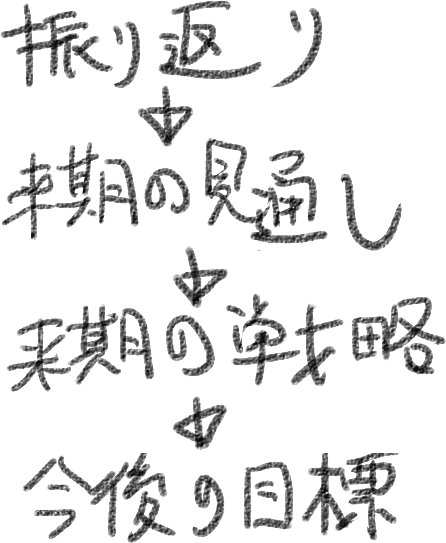 振り返り
↓
来期の見通し
↓
来期の戦略
↓
今後の目標